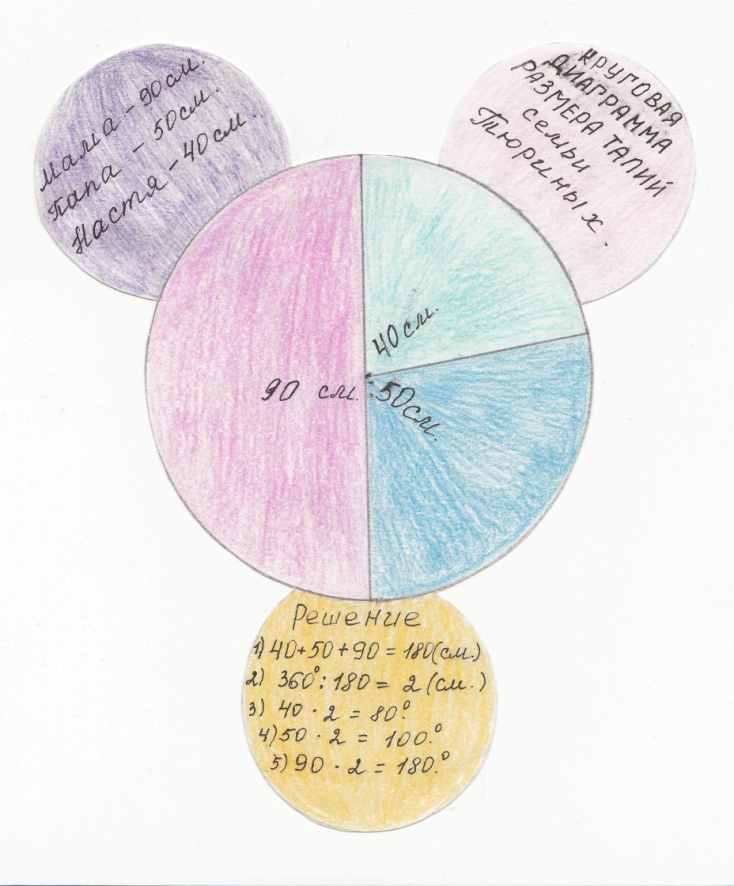 Мама - 90 см.
Папа - 50 см.
Настя - 40 см.
КРУГОВАЯ
ДИАГРАММА
РАЗМЕРА ТАЛИЙ
семьи
Тюриных.
40 см.
90 см.
50 см.
Решение
1) 40+50+90 = 180(см.)
2) 360°:180 = 2 (см.)
3) 40 · 2 = 80.°
4) 50 · 2 = 100.°
5) 90 · 2 = 180.°